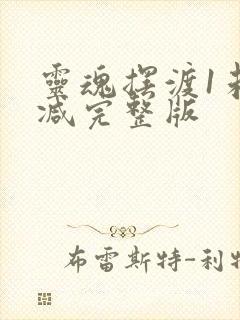 靈魂摆渡1未
减完整版
布雷斯特-利特